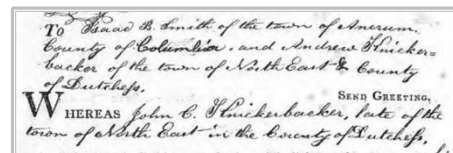 To Isaac B. Smith of the town of Ancrum,
County of Columbia, and Andrew Knicker=
backer of the town of North East & County
of Dutchess,
SEND GREETING,
WHEREAS John C. Knickerbacker, late of the
town of North East in the County of Dutchess,